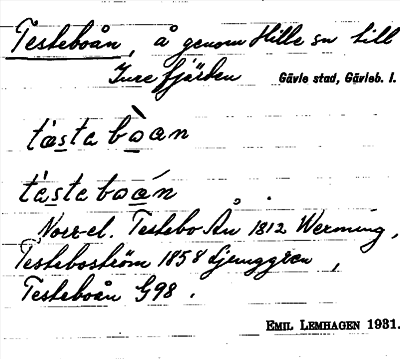 Testeboån, å genom Hille sn till
Inre fjärden Gävle stad, Gävleb. l.
tæsta bòan
tæsta boán
Norr el. Testebo Ån 1812 Werming,
Testeboström 1858 Ljunggren,
Testeboån G98.
EMIL LEMHAGEN 1931.